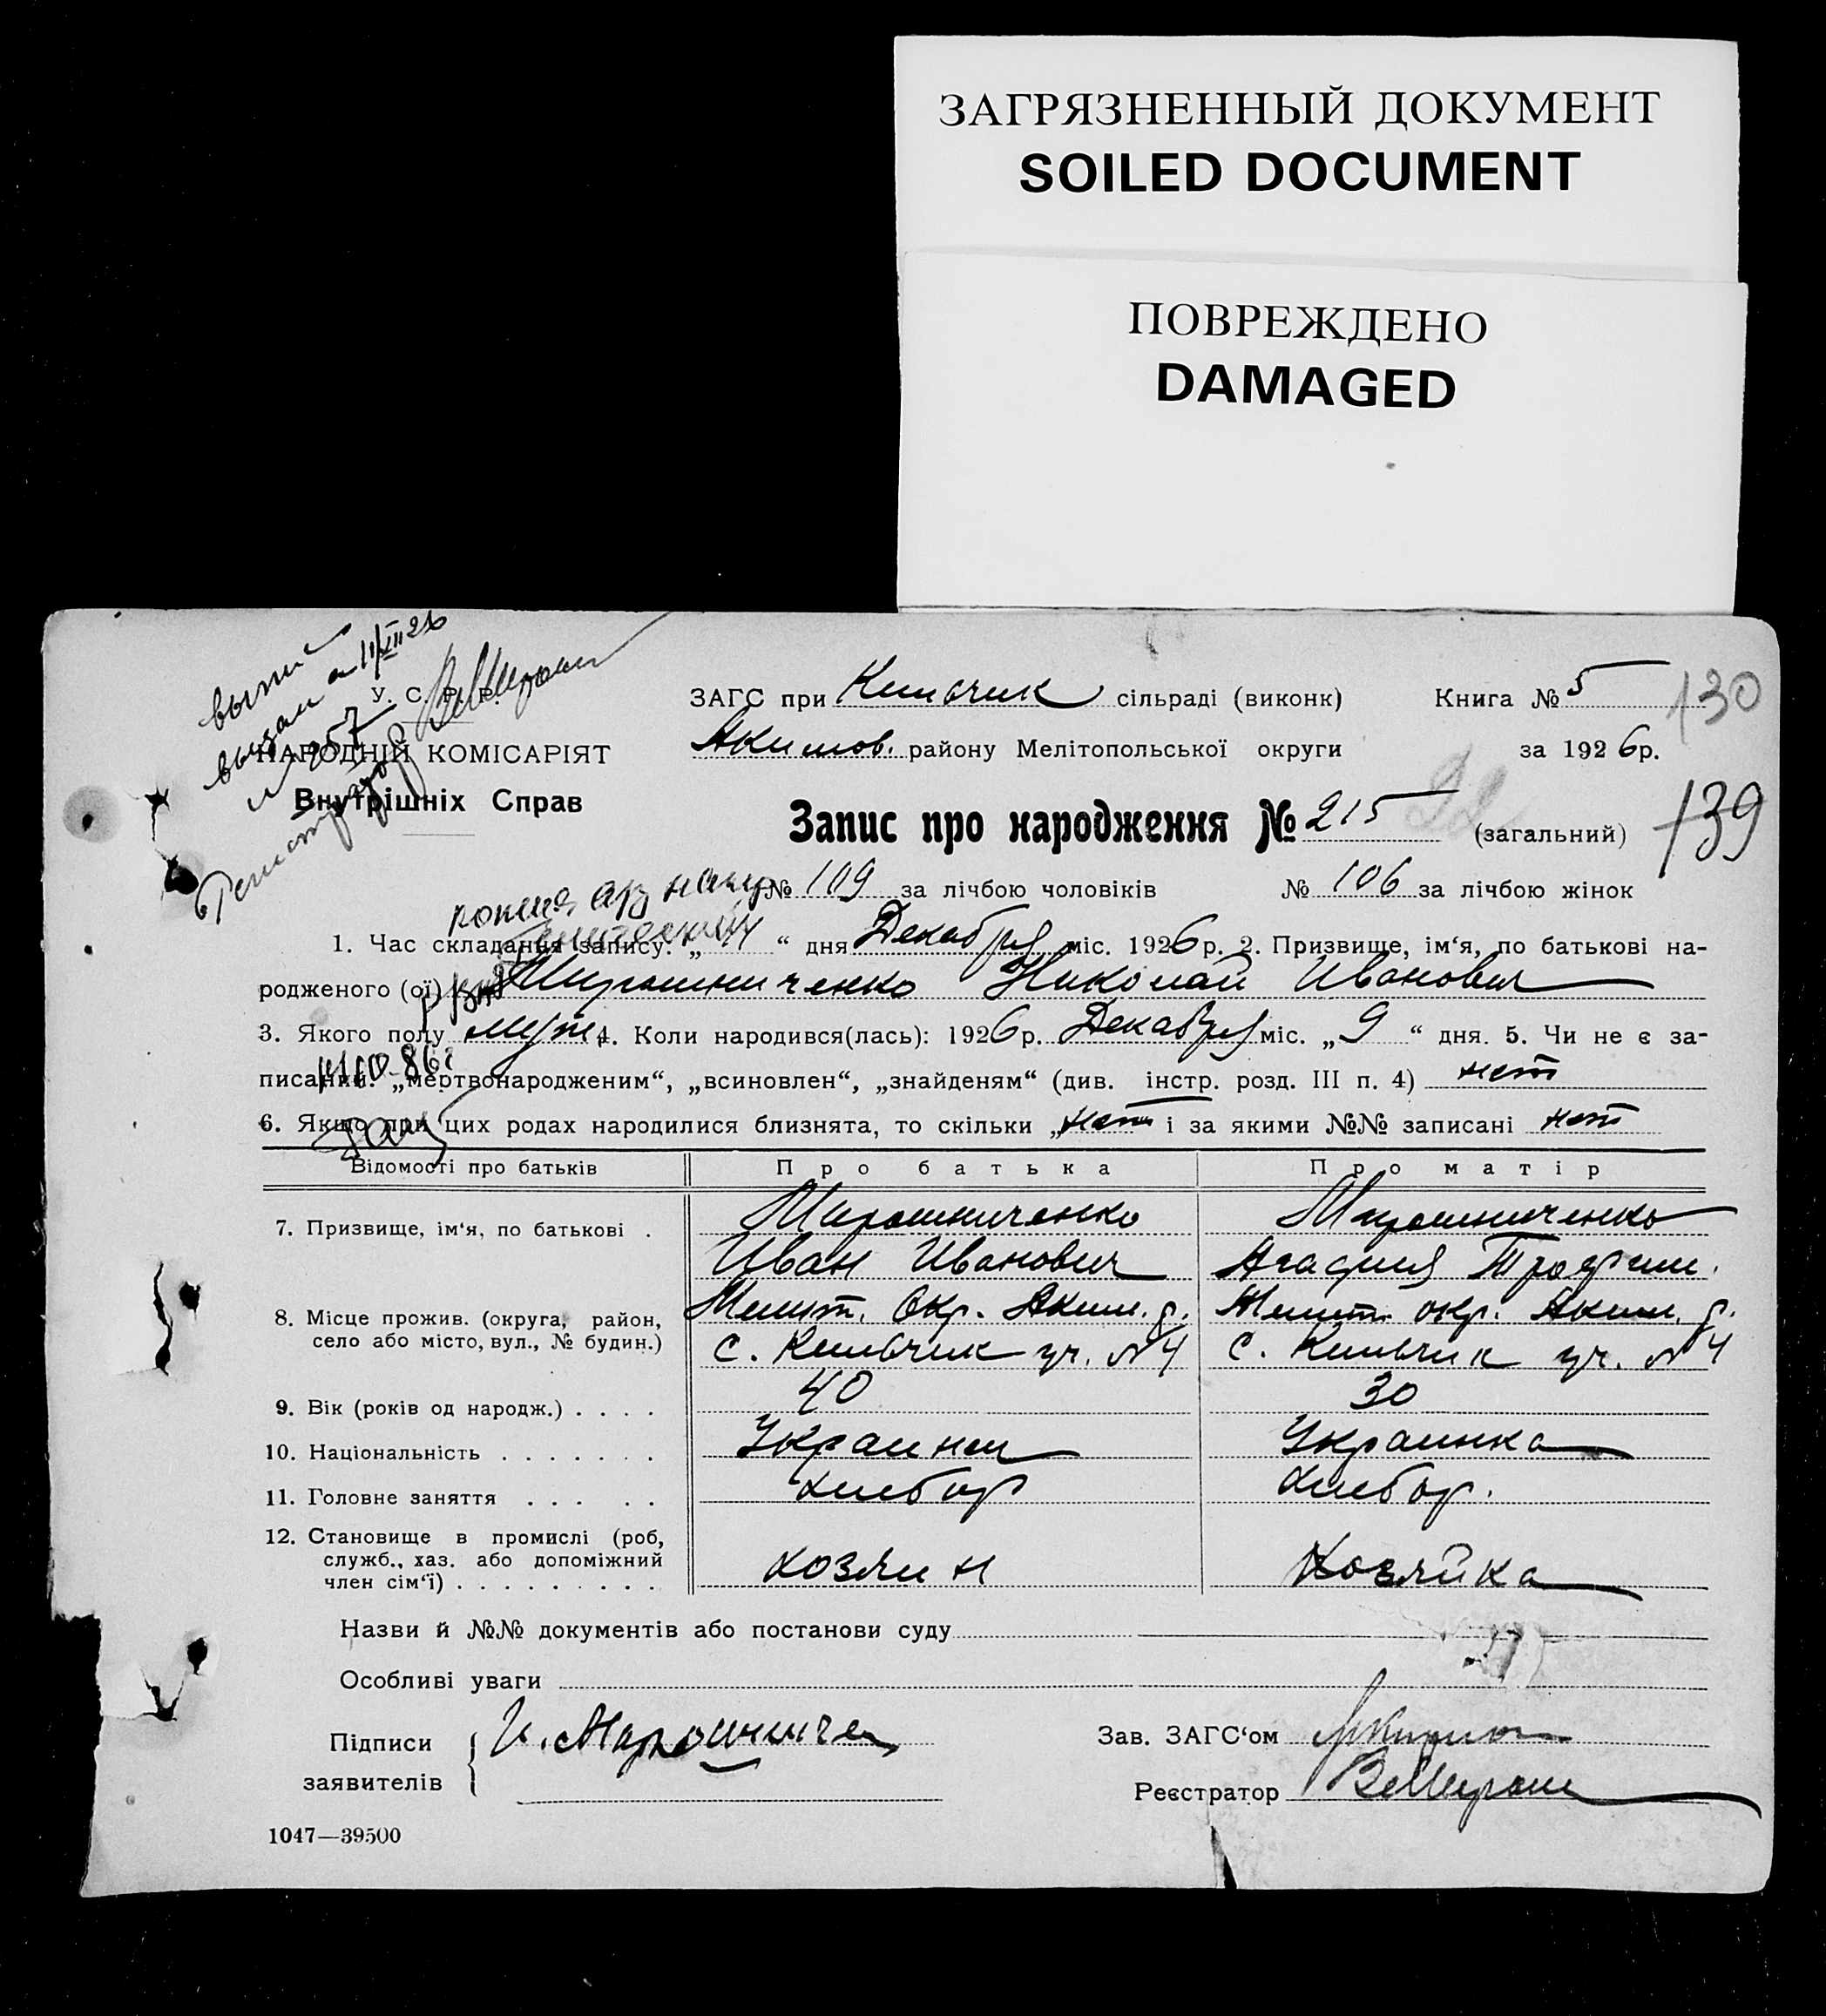 ЗАГРЯЗНЕННЫЙ ДОКУМЕНТ
SOILED DOCUMENT
ПОВРЕЖДЕНО
DAMAGED
У. С. Р. Р.
НАРОДНІЙ КОМІСАРІЯТ
Внутрішніх Справ
ЗАГС при Кильчик сільраді (виконк)
Книга № 5
130
Акимов. району Мелітопольської округи
за 1926 р.
Запис про народження № 215 (загальний)
139
№ 109 за лічбою чоловіків № 106 за лічбою жінок
1. Час складання запису: „ “ дня Декабря міс. 1926 р. 2. Призвище, ім‘я, по батькові на-
родженого (ої) Мирошниченко Николай Иванович
3. Якого полу муж 4. Коли народився(лась): 1926 р. Декабря міс. „ 9 “ дня. 5. Чи не є за-
писаний: „мертвонародженим“, „всиновлен“, „знайденям“ (див. інстр. розд. III п. 4) нет
6. Якщо при цих родах народилися близнята, то скільки „ нет і за якими №№ записані нет
Відомості про батьків Про батька Про матір
7. Призвище, ім‘я, по батькові . Мирошниченко Мирошниченко
Иван Иванович Агафия Трофим.
8. Місце прожив. (округа, район, Мелит. Окр. Аким. р. Мелит. окр. Аким. р.
село або місто, вул., № будин.) с. Кильчик уч. №4 с. Кильчик уч. №4
9. Вік (років од народж.) . . . . 40 30
10. Національність . . . . . . . Украинец Украинка
11. Головне заняття . . . . . хлебор хлебор.
12. Становище в промислі (роб,
служб., хаз. або допоміжний хозяин Хозяйка
член сім‘ї) . . . . . . . . .
Назви й №№ документів або постанови суду
Особливі уваги
Підписи И. Мирошниче
заявителів
Зав. ЗАГС‘ом
Реєстратор
1047—39500